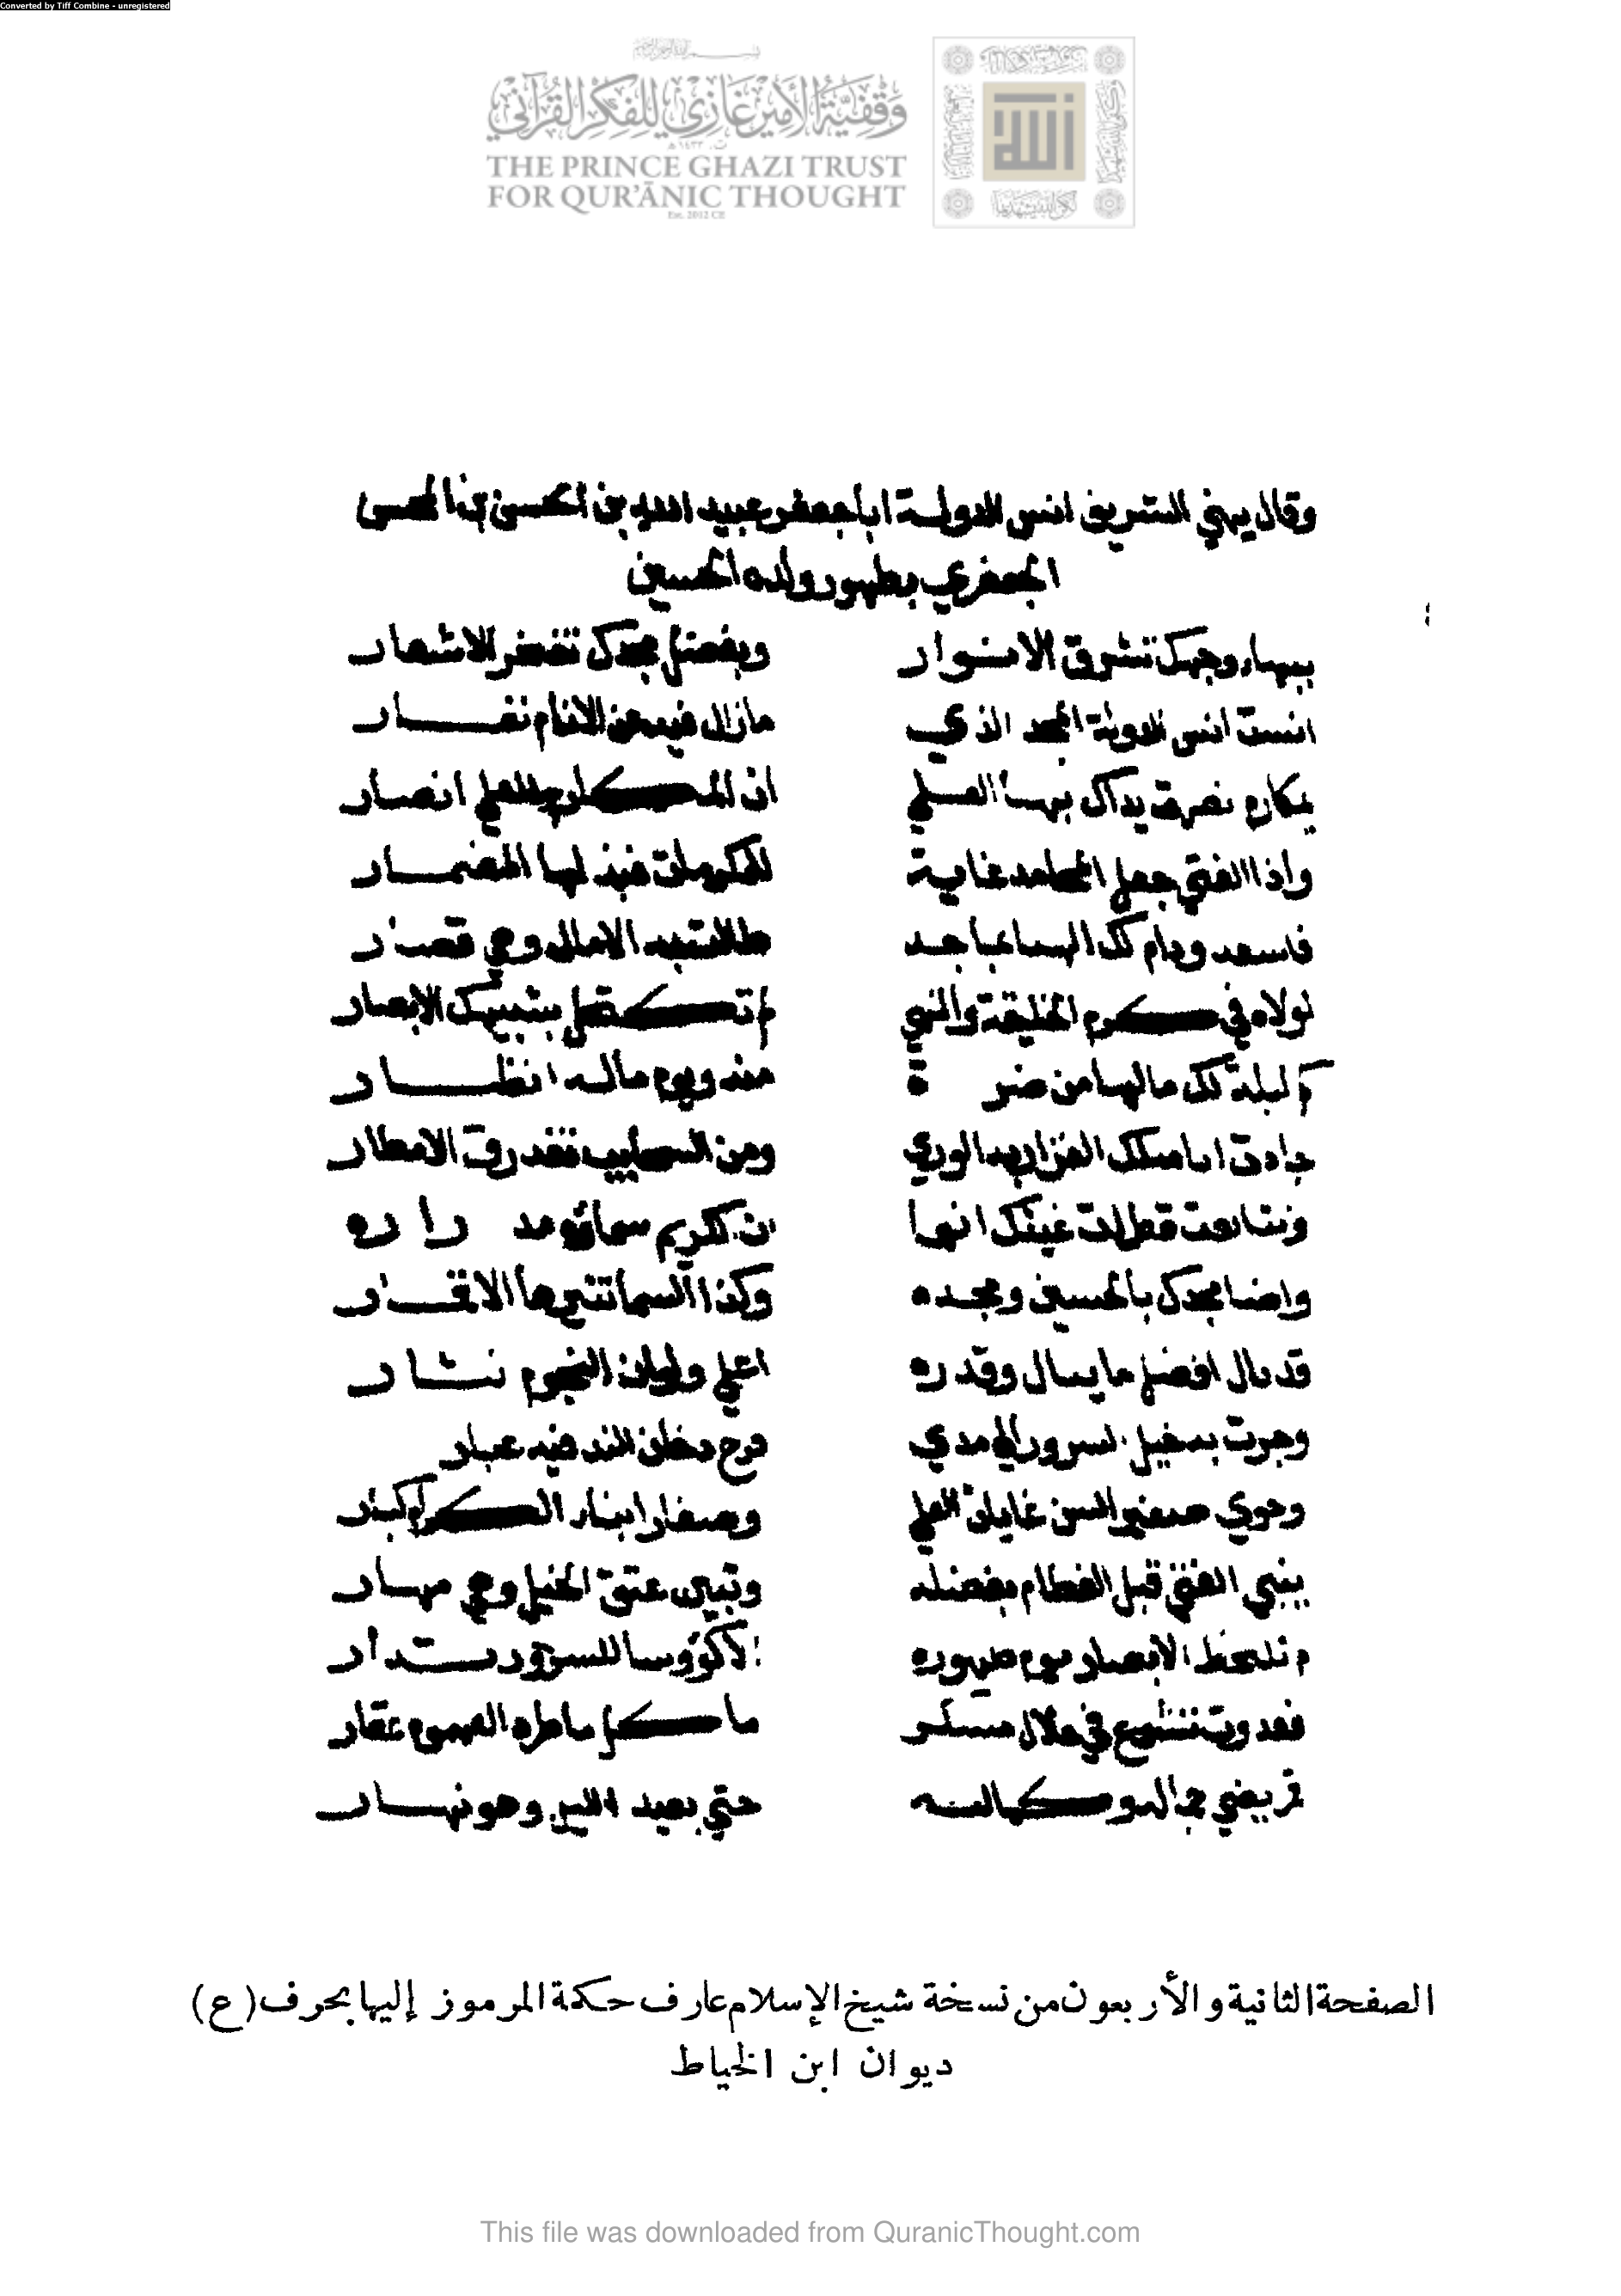 Converted by Tiff Combine - unregistered
وقفية الأمير غازي للفكر القرآني
THE PRINCE GHAZI TRUST
FOR QUR'ĀNIC THOUGHT
Est. 2012 CE
وقال يهني الشريف انس الدولة ابا جعفر عبيد الله بن الحسن بن
الجعفري بطهور ولده الحسين
ببهاء وجهك تشرق الانوار وبفضل مجدك تفخر الاشعار
انست انس الدولة المجد الذي مازال فيه عن الانام نفار
بمكارم نصرت يداك بها العلي ان المكارم للعلي انصار
واذا الفتي جعل المحامد غاية للمكرمات فبذلها المضمار
فاسعد ودام لك الهنا بماجد طالت به الامال وهي قصار
لولاه في كرم الخليقة والنهي لم تكتحل بشبيهك الابصار
كم ليلة لك مالها من ضرة منه ويوم ماله انظار
جادت اناملك الغزار به الوري ومن السحايب تغدق الامطار
وتتابعت قطرات غيثك انها ان الكريم سماؤه مدراره
واضا مجدك بالحسين ومجده وكذا السما تنيرها الاقمار
قد نال افضل ما ينال وقدره اعلي ولو ان النجوم نثار
وجرت به خيل السرور الي مدي فرح دخان الند فيه غبار
وحوي صغير السن غايات العلي وصغار ابناء الكرام كبار
ينبي الفتي قبل الفطام بفضله وتبين عتق الخيل وهي مهار
لم تلحظ الابصار يوم طهوره الا كؤوسا للسرور تدار
فغدوت تشرع في حلال مسكر ما كل ما طرد الهموم عقار
حتي يعيد الليل وهو نهار
الصفحة الثانية والأربعون من نسخة شيخ الإسلام عارف حكمة المرموز إليها بحرف (ع)
ديوان ابن الخياط
This file was downloaded from QuranicThought.com